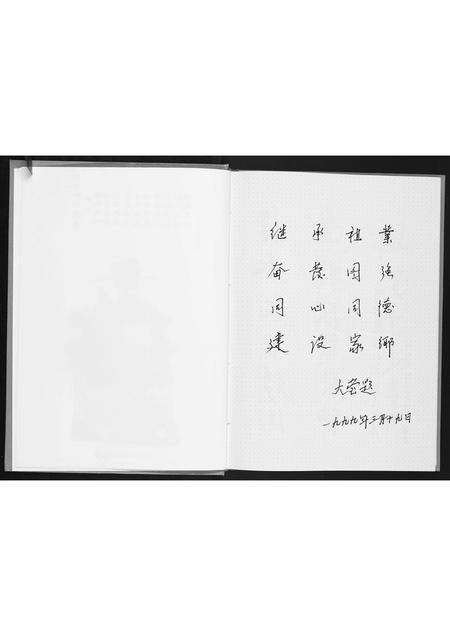 继承祖業
奋发图强
同心同德
建设家鄉
大莹题
一九九九年三月十九日